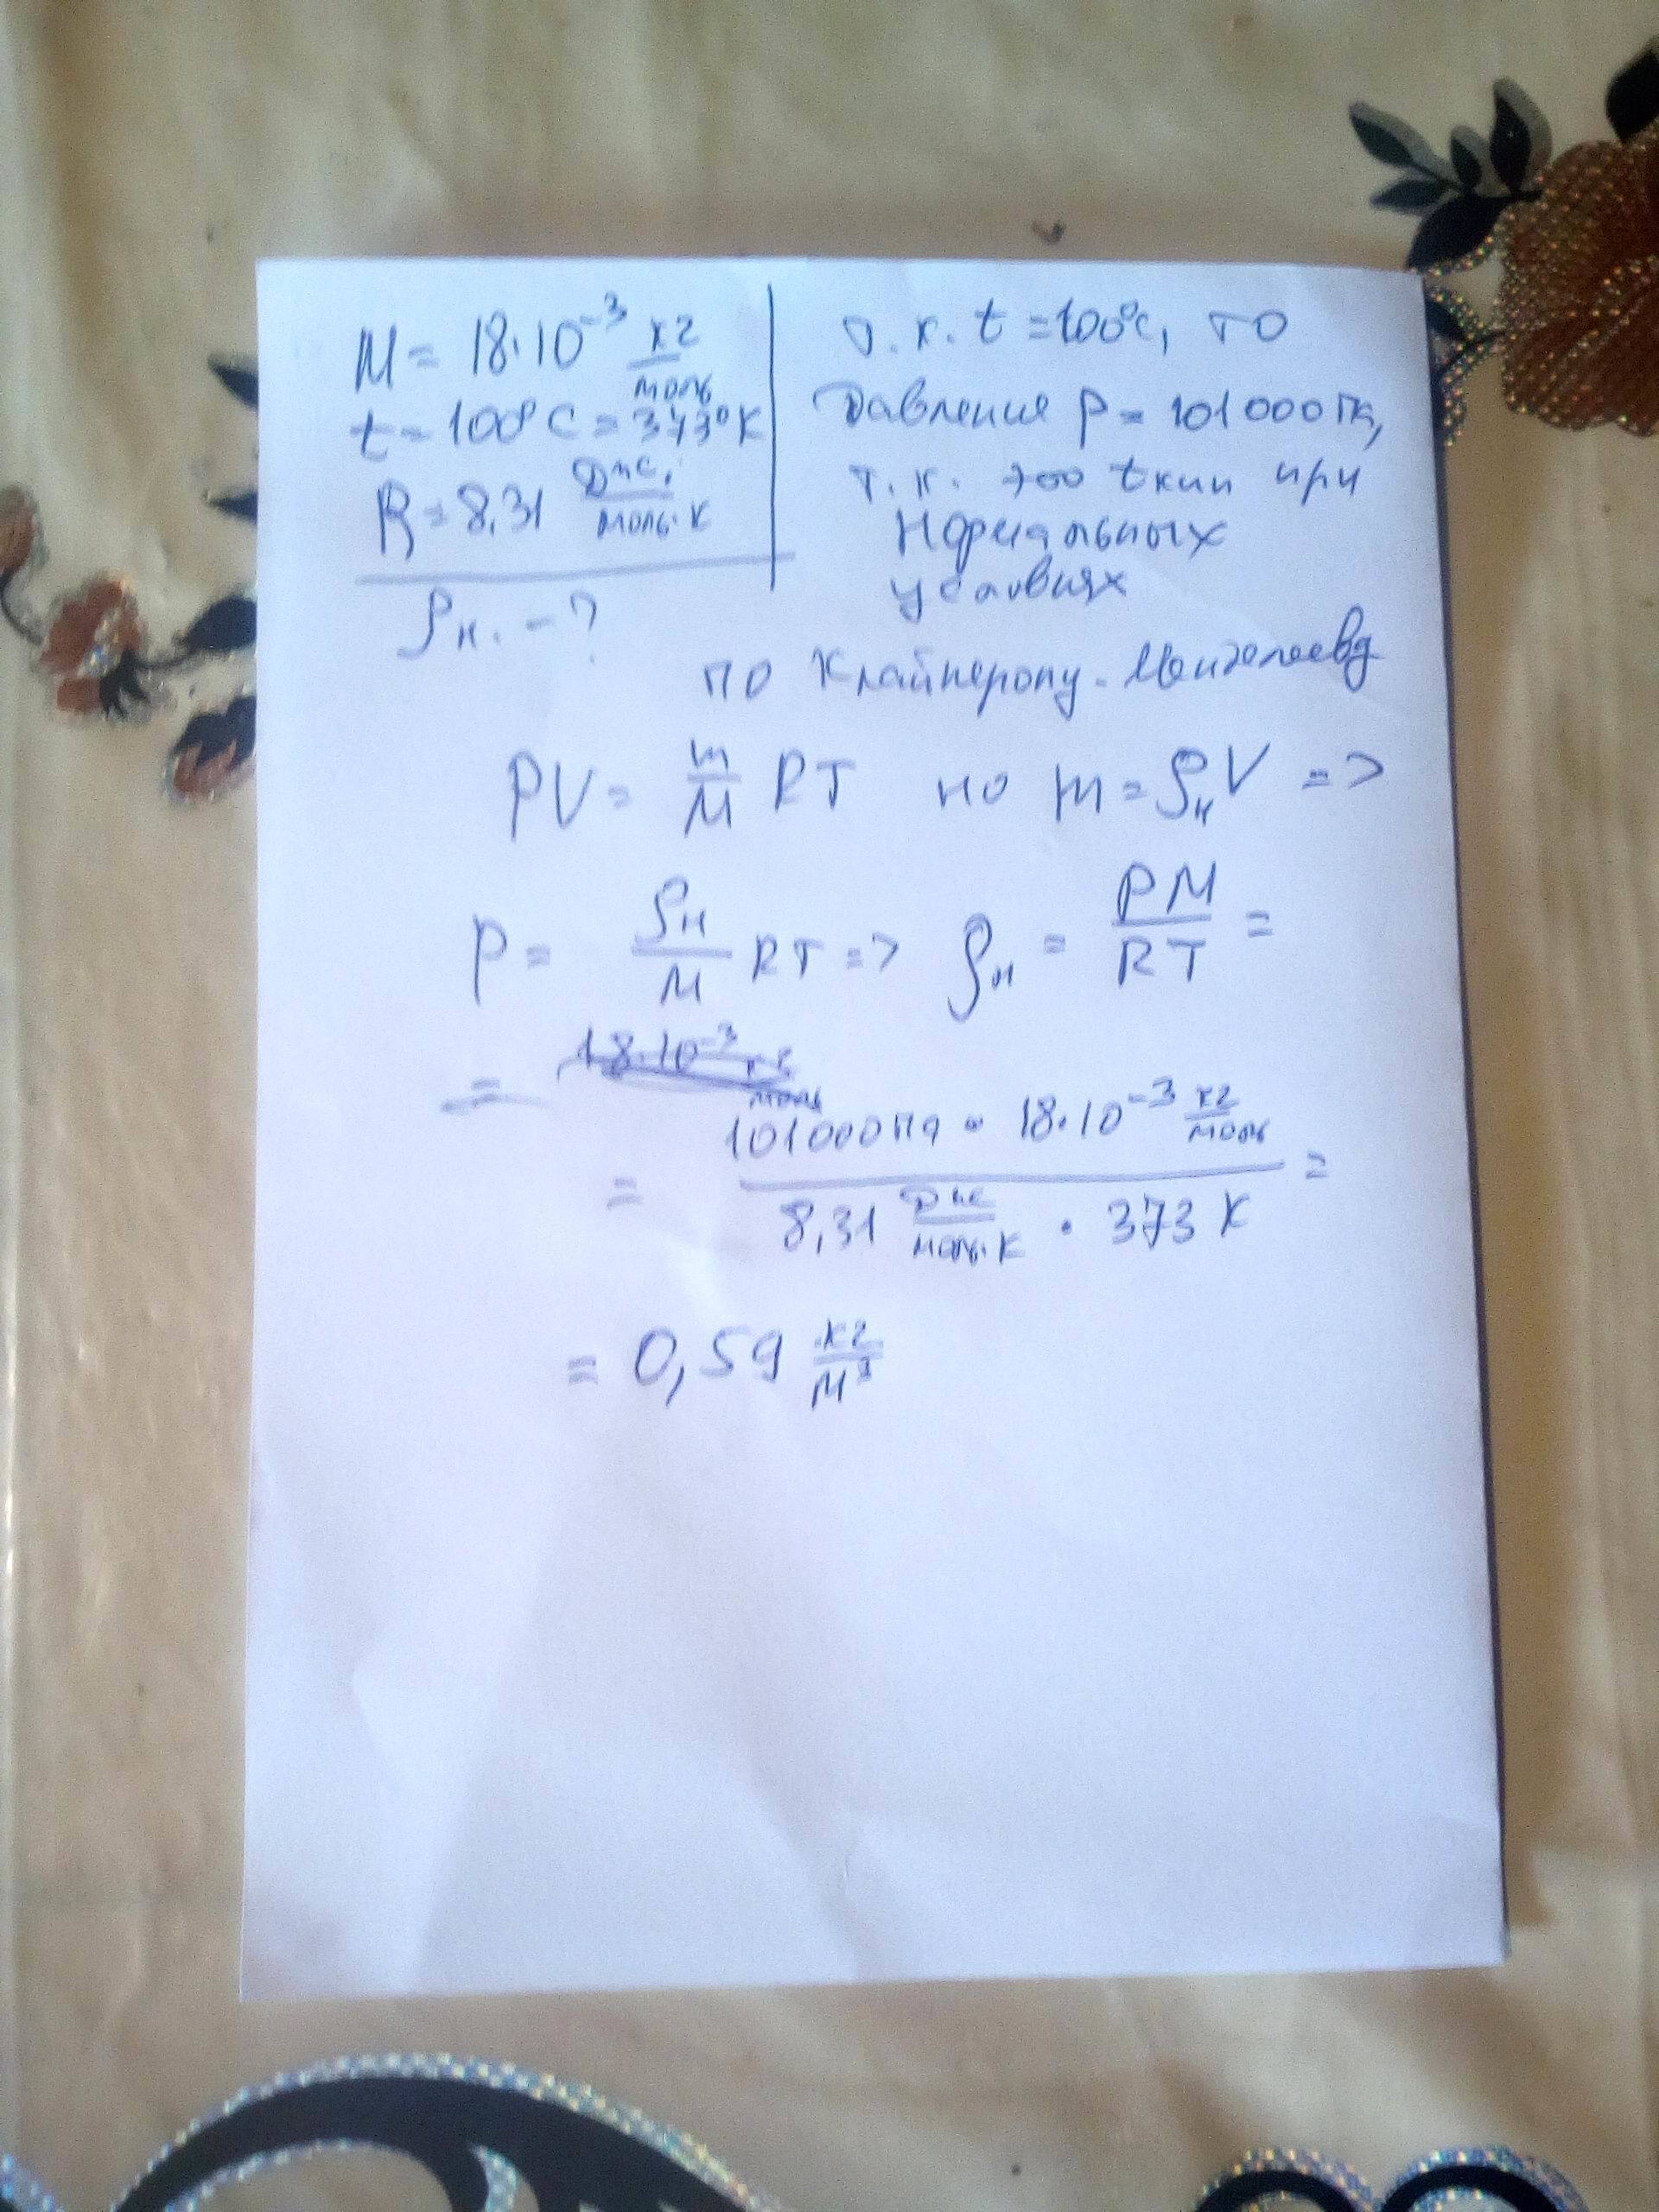 M = 18·10⁻³ кг/моль
t = 100°C = 373°K
R = 8,31 Дж/моль·К
ρн. - ?
т.к. t = 100°C, то
Давления P = 101000 Па,
т.к. это tкип при
нормальных
условиях
по Клайперону-Менделеевa
PV = m/M RT но m = ρнV =>
P = ρн/M RT => ρн = PM/RT =
= 18·10⁻³ кг/моль
= 101000 Па · 18·10⁻³ кг/моль / 8,31 Дж/моль·К · 373 К =
= 0,59 кг/м³